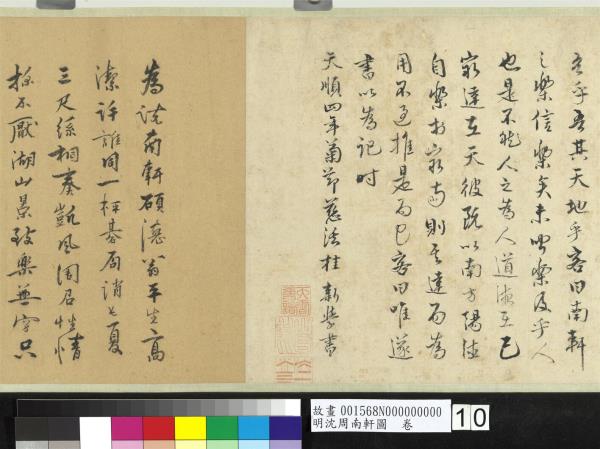 乎吾其天地乎客曰南軒
之樂信樂矣未聞樂及乎人
也是不然人之為人道德在己
窮達在天彼既以南方陽德
自樂於窮則其達而為
用不過推是而已客曰唯遂
書以為記時
天順四年菊節慈溪桂新書
為語南軒碩德翁平生高
潔許誰同一枰碁局消長夏
三尺絲桐奏凱風閒居性情
探不厭湖山景致樂無窮只
故畫 001568N000000000
明沈周南軒圖 卷
10